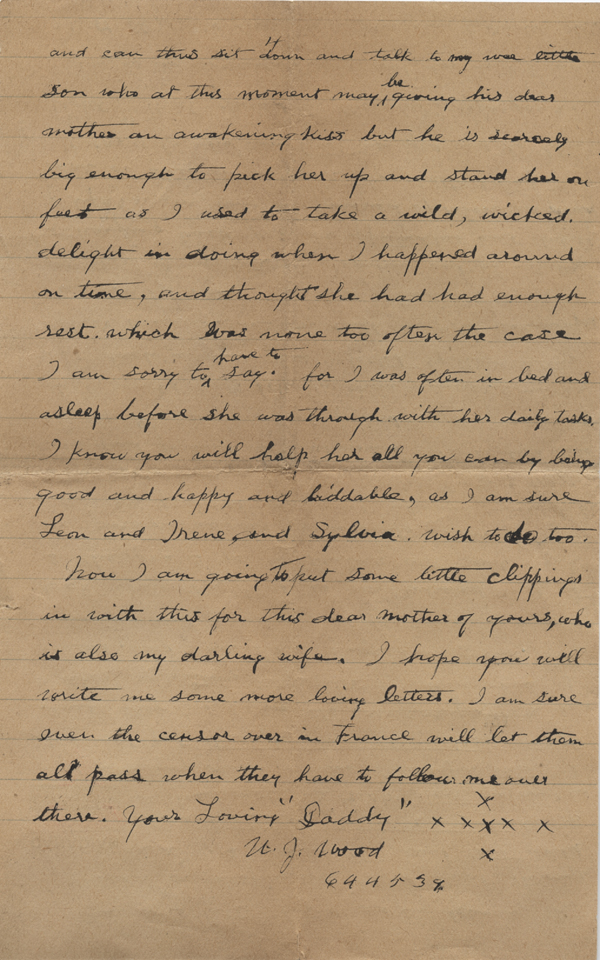 and can thus sit "down and talk to my wee little
son who at this moment may be giving his dear
mother an awakening kiss but he is scarcely
big enough to pick her up and stand her on
feet as I used to take a wild, wicked.
delight in doing when I happened around
on time, and thought she had had enough
rest. which was none too often the case
I am sorry to have to say. for I was often in bed and
asleep before she was through with her daily tasks.
I know you will help her all you can by being
good and happy and biddable, as I am sure
Leon and Irene, and Sylvia. wish to do too.
Now I am going to put some little clippings
in with this for this dear mother of yours, who
is also my darling wife. I hope you will
write me some more loving letters. I am sure
even the censor over in France will let them
all pass when they have to follow me over
there. Your Loving "Daddy" x x x x x
x
x
W. J. Wood